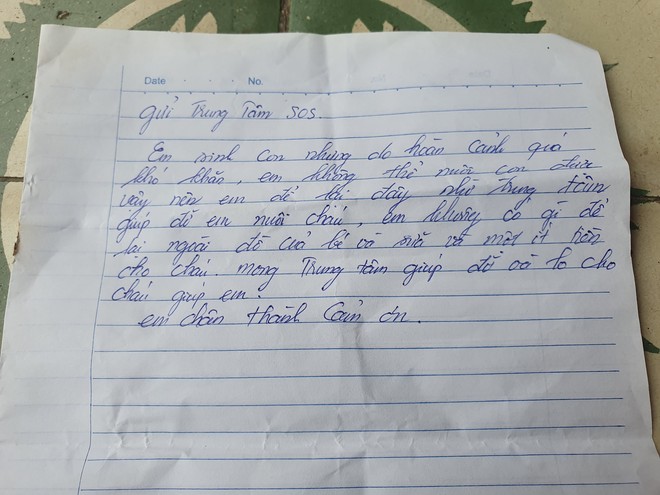 Date No.
Gửi Trung Tâm SOS.
Em sinh con nhưng do hoàn cảnh quá
khó khăn, em không thể nuôi con được
vậy nên em để lại đây nhờ trung tâm
giúp đỡ em nuôi cháu, em không có gì để
lại ngoài đồ của bé và sữa và một ít tiền
cho cháu. mong Trung tâm giúp đỡ và lo cho
cháu giúp em.
em chân thành Cảm ơn.